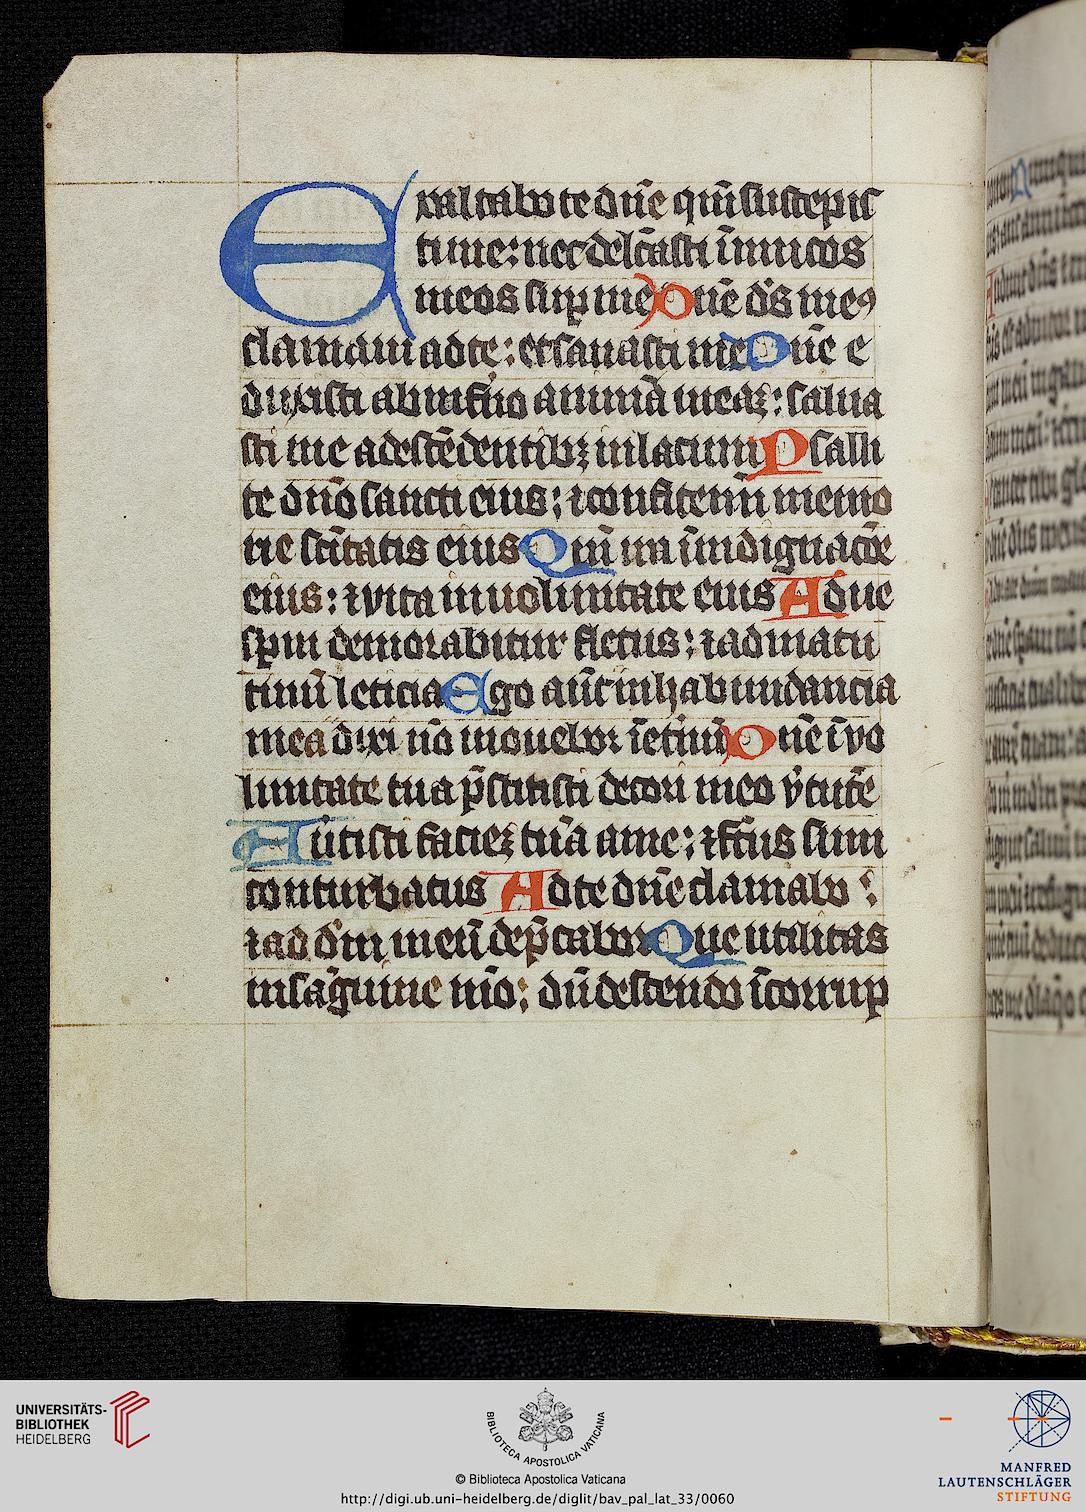 Exaltabo te dn̄e qm̄ suscepis
ti me: nec delc̄asti īimicos
meos sup me Dn̄e ds̄ meꝰ
clamaui ad te: et sanasti me Dn̄e e
duxisti ab inferno animā meaʒ: salua
sti me a descēdentibʒ in lacum Psalli
te dn̄o sancti eius: ⁊ confitemī memo
rie scītatis eius Qm̄ ira ī indignac̄oe
eius: ⁊ vita in uoluntate eius Ad ue
sꝑm demorabitur fletus: ⁊ ad matu
tinū leticia Ego aūt in habundancia
mea dixi nō mouebor īetnū Dn̄e ī vo
luntate tua p̄stitisti decori meo v̉tutē
Aủtisti facieʒ tuā a me: ⁊ fc̄us sum
conturbatus Ad te dn̄e clamabo :
⁊ ad dm̄ meū dep̄cabor Que utilitas
in sāguine meo: dū descendo ī corrup
UNIVERSITÄTS-
BIBLIOTHEK
HEIDELBERG
BIBLIOTECA APOSTOLICA VATICANA
© Biblioteca Apostolica Vaticana
http://digi.ub.uni-heidelberg.de/diglit/bav_pal_lat_33/0060
MANFRED
LAUTENSCHLÄGER
STIFTUNG